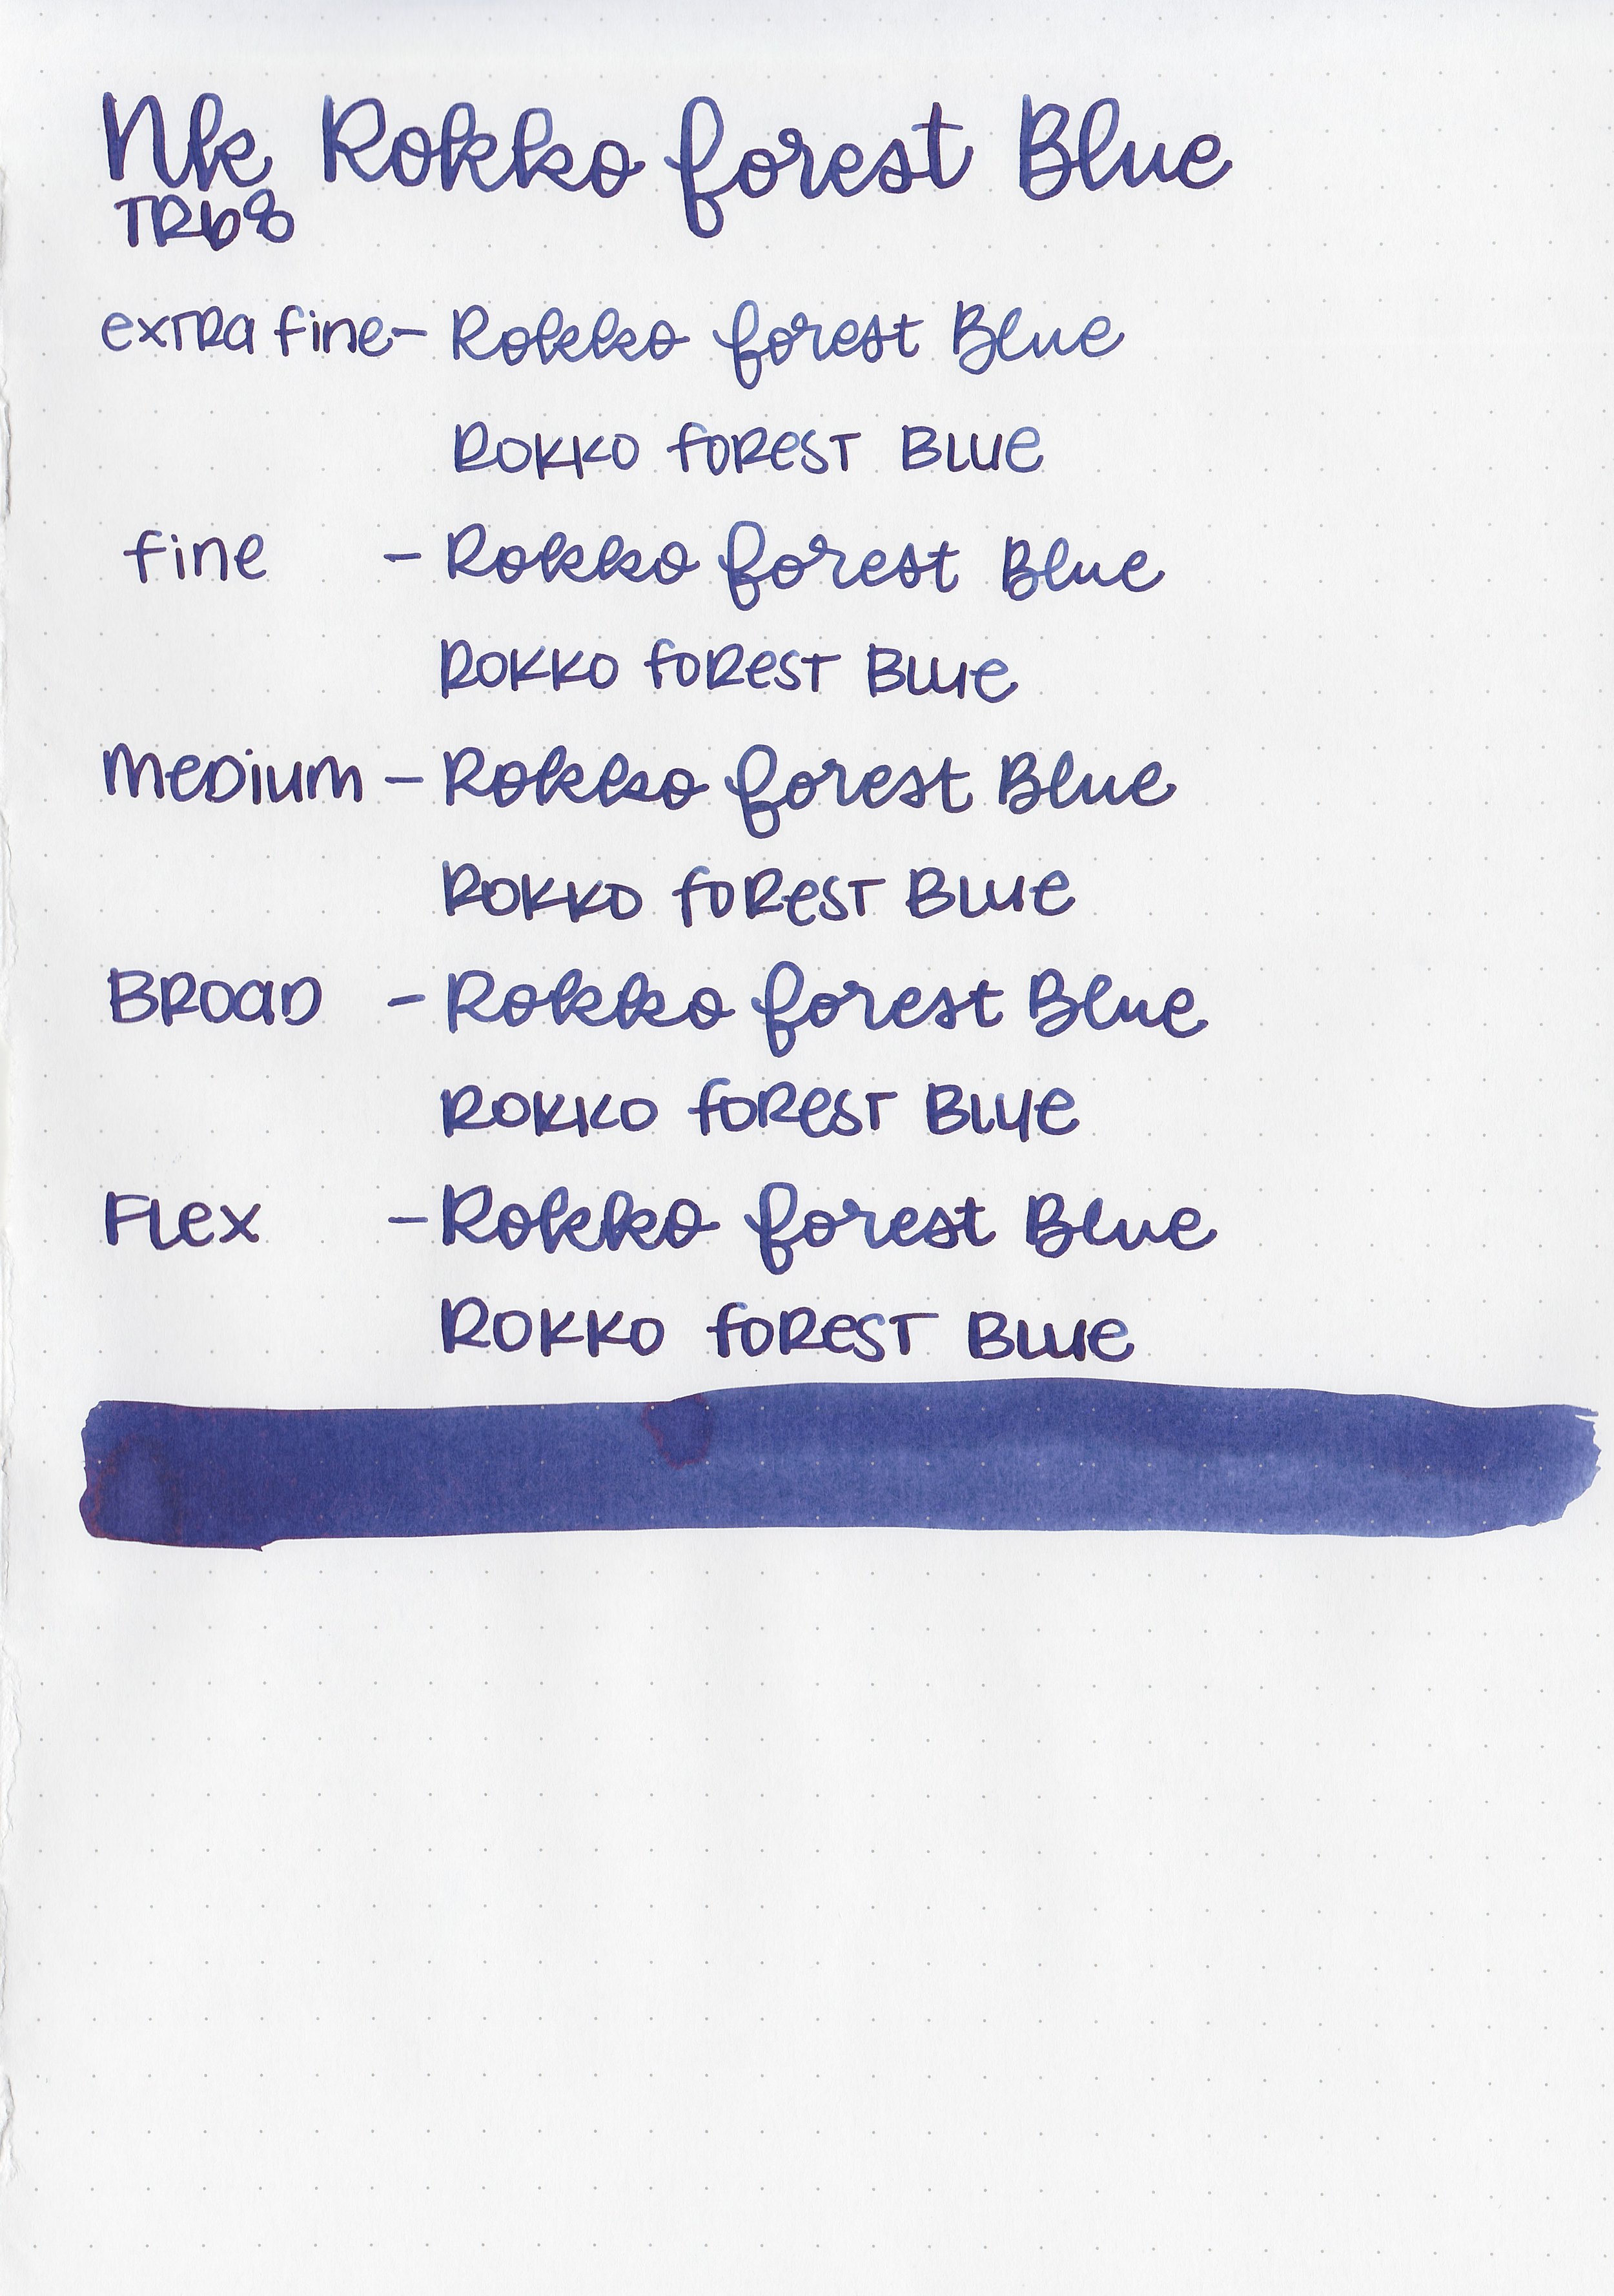 Nk Rokko forest Blue
TR68
extra fine - Rokko forest Blue
Rokko forest Blue
fine - Rokko forest Blue
Rokko forest Blue
medium - Rokko forest Blue
Rokko forest Blue
Broad - Rokko forest Blue
Rokko forest Blue
Flex - Rokko forest Blue
Rokko forest Blue